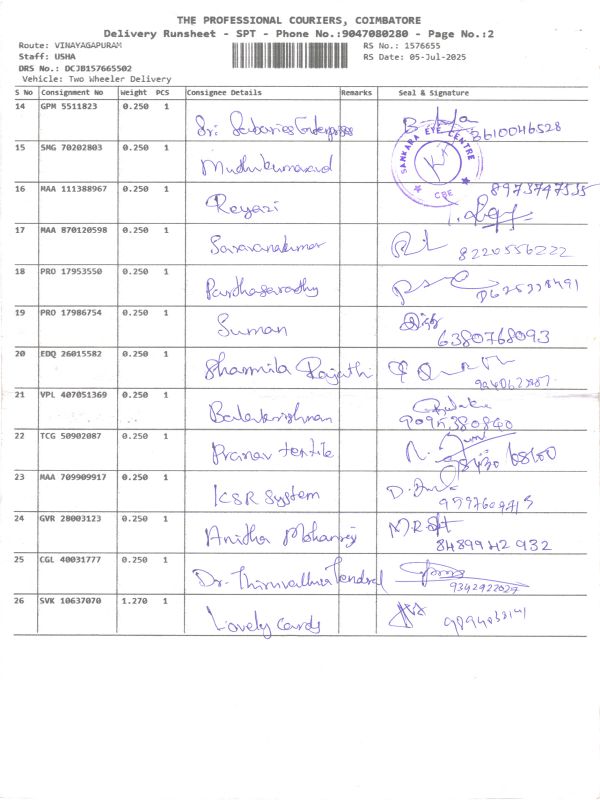 THE PROFESSIONAL COURIERS, COIMBATORE
Delivery Runsheet - SPT - Phone No.:9047080280 - Page No.:2
Route: VINAYAGAPURAM RS No.: 1576655
Staff: USHA RS Date: 05-Jul-2025
DRS No.: DCJB157665502
Vehicle: Two Wheeler Delivery
S No Consignment No Weight PCS Consignee Details Remarks Seal & Signature
14 GPM 5511823 0.250 1
Sri Sabaries Enterprises 3610046528
15 SMG 70202803 0.250 1
Muthukumarasd SANKARA EYE CENTRE CBE
16 MAA 111388967 0.250 1 8973747535
Reyazi
17 MAA 870120598 0.250 1
Saravanakumar 8220556222
18 PRO 17953550 0.250 1
Parthasarathy
19 PRO 17986754 0.250 1
Suman 6380768093
20 EDQ 26015582 0.250 1
Sharmila Rajathi
21 VPL 407051369 0.250 1
Balakrishnan 9095380840
22 TCG 50902087 0.250 1
Pranav textile
23 MAA 709909917 0.250 1
KSR System
24 GVR 28003123 0.250 1
Anitha Mohanraj 8489942932
25 CGL 40031777 0.250 1
Dr. Thiruvalluva Tendral 9342922027
26 SVK 10637070 1.270 1
Lovely cards